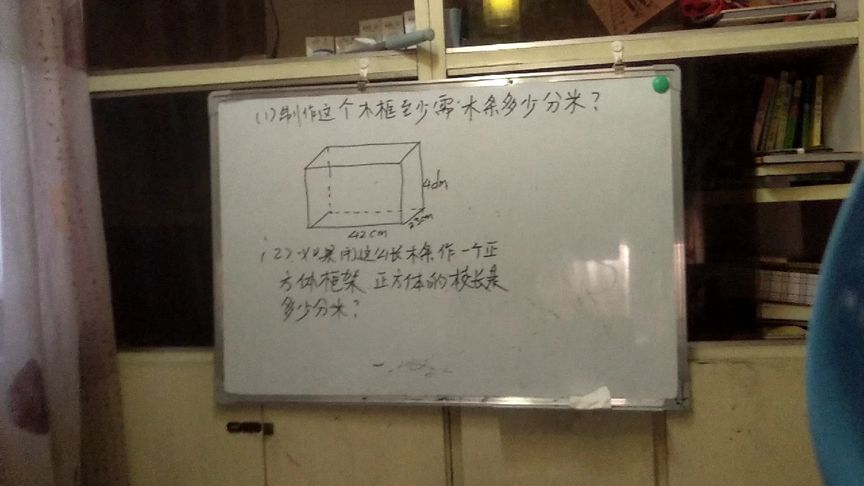 (1)制作这个木框至少需木条多少分米?
4dm
23cm
42cm
(2)如果用这么长木条作一个正
方体框架 正方体的校长是
多少分米?